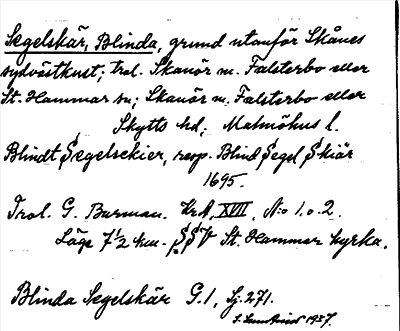 Segelskär, Blinda, grund utanför Skånes
sydvästkust; trol. Skanör m. Falsterbo eller
St. Hammar sn; Skanör m. Falsterbo eller
Skytts hd; Malmöhus l.
Blindt Segelsckier, resp. Blind Segel Skiär
1695.
Trol. G. Burman. Kr.A. XVII, N:o 1. o. 2.
Läge 7 1/2 km. SSV St. Hammar kyrka.
Blinda Segelskär G.1, Sj. 271.
1937.